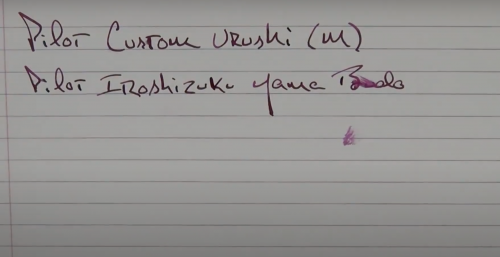 Pilot Custom Urushi (M)
Pilot Iroshizuku Yama